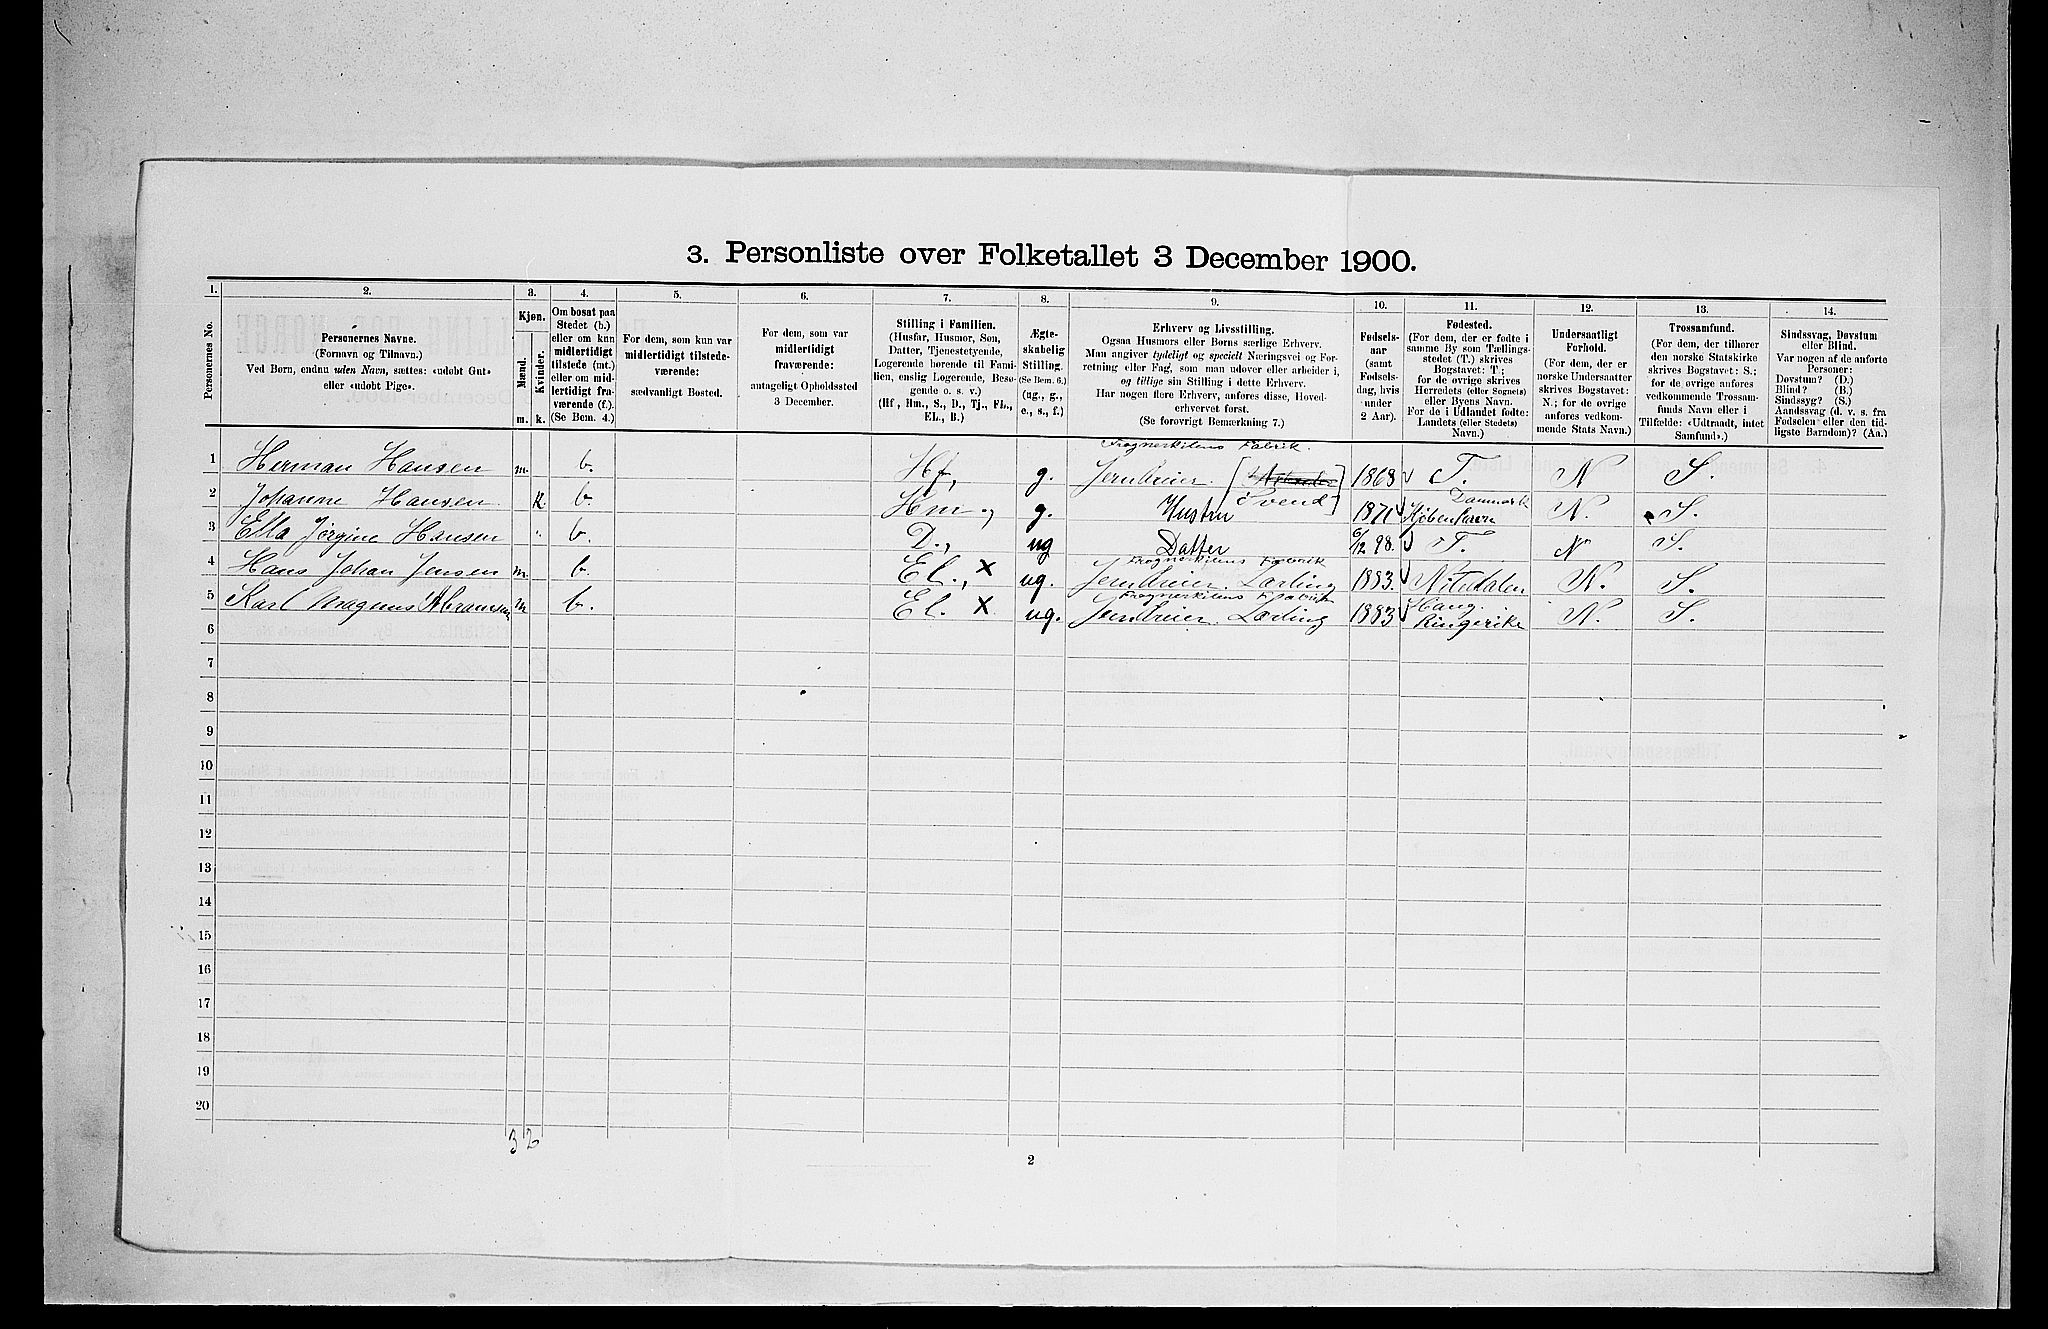 3. Personliste over Folketallet 3 December 1900.
1. 2. 3. 4. 5. 6. 7. 8. 9. 10. 11. 12. 13. 14.
Personernes No.
Personernes Navne.
(Fornavn og Tilnavn.)
Ved Børn, endnu uden Navn, sættes: «udøbt Gut»
eller «udøbt Pige».
Kjøn.
Mænd. Kvinder.
m. k.
Om bosat paa
Stedet (b.)
eller om kun
midlertidigt
tilstede (mt.)
eller om mid-
lertidigt fra-
værende (f.).
(Se Bem. 4.)
For dem, som kun var
midlertidigt tilstede-
værende:
sædvanligt Bosted.
For dem, som var
midlertidigt
fraværende:
antageligt Opholdssted
3 December.
Stilling i Familien.
(Husfar, Husmor, Søn,
Datter, Tjenestetyende,
Logerende hørende til Fami-
lien, enslig Logerende, Besø-
gende o. s. v.)
(Hf., Hm., S., D., Tj., FL.,
EL., B.)
Ægte-
skabelig
Stilling.
(Se Bem. 6.)
(ug., g.,
e., s., f.)
Erhverv og Livsstilling.
Ogsaa Husmors eller Børns særlige Erhverv.
Man angiver tydeligt og specielt Næringsvei og For-
retning eller Fag, som man udøver eller arbeider i,
og tillige sin Stilling i dette Erhverv.
Har nogen flere Erhverv, anføres disse, Hoved-
erhvervet først.
(Se forøvrigt Bemærkning 7.)
Fødsels-
aar
(samt
Fødsels-
dag, hvis
under
2 Aar).
Fødested.
(For dem, der er fødte i
samme By som Tællings-
stedet (T.) skrives
Bogstavet: T.;
for de øvrige skrives
Herredets (eller Sognets)
eller Byens Navn.
For de i Udlandet fødte:
Landets (eller Stedets)
Navn.)
Undersaatligt
Forhold.
(For dem, der er
norske Undersaatter
skrives Bogstavet:
N.; for de øvrige
anføres vedkom-
mende Stats Navn.)
Trossamfund.
(For dem, der tilhører
den norske Statskirke
skrives Bogstavet: S.;
for de øvrige anføres
vedkommende Trossam-
funds Navn eller i
Tilfælde: «Udtraadt, intet
Samfund».)
Sindssvag, Døvstum
eller Blind.
Var nogen af de anførte
Personer:
Døvstum? (D.)
Blind? (B.)
Sindssyg? (S.)
Aandssvag (d. v. s. fra
Fødselen eller den tid-
ligste Barndom)? (Aa.)
Frognerkilens Fabrik.
1 Herman Hansen m. b. Hf, g. Jerndreier Svend 1868 T. N S.
2 Johanne Hansen k b. Hm., g. Hustru 1871 Danmark Kjøbenhavn N. S.
3 Ella Jørgine Hansen b. D., ug Datter 6/12 98. T. N S.
Frognerkilens Fabrik
4 Hans Johan Jensen m. b. El., x ug. Jerndreier Lærling 1883. Nitedalen N. S.
Frognerkilens Fabrik
5 Karl Magnus Abramsen m b. El. x ug. Jerndreier. Lærling 1883 Haug. Ringerike N. S.
6
7
8
9
10
11
12
13
14
15
16
17
18
19
20
3 2
2